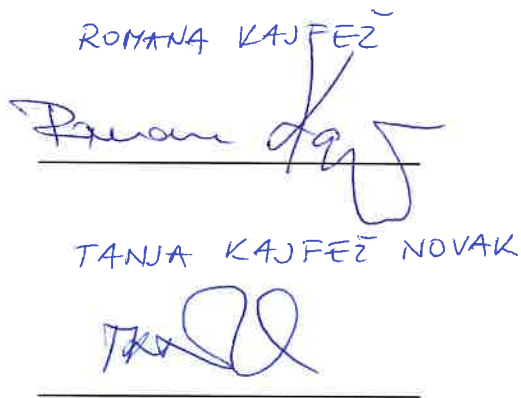 ROMANA KAJFEŽ
Romana Kajfež
TANJA KAJFEŽ NOVAK